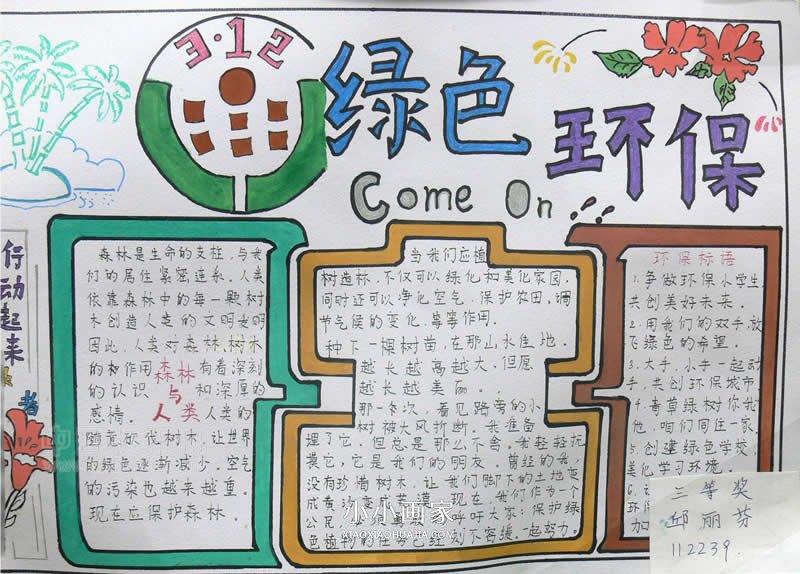 3·12
绿色
环保
Come On
行动起来
森林是生命的支柱，与我
们的居住紧密连系。人类
依靠森林中的每一颗树
木创造人类的文明发明
因此，人类对森林，树木
的和作用
有着深刻
的认识
和深厚的
感情。
人类的
森林
与
人类
随意砍伐树木，让世界
的绿色逐渐减少，空气
的污染也越来越重。
现在应保护森林。
当我们应植
树造林，不仅可以绿化和美化家园，
同时还可以净化空气，保护农田，调
节气候的变化，等等作用。
种下一棵树苗，在那山水佳地。
越长越高越大，但愿
越长越美丽。
那一次，看见路旁的小
树被大风折断。我准备
埋了它，但总是那么不舍。我轻轻抚
摸它，它是我们的朋友，曾经的我，
没有珍惜树木，让我们脚下的土地变
公民，
呼吁大家：保护绿
环保标语
1.争做环保小学生
共创美好未来。
2.用我们的双手放
飞绿色的希望。
3.大手，小手一起动
手，共创环保城市
4.青草绿树你我
他，咱们同住一家
5.创建绿色学校，
美化学习环境。
三等奖
邱丽芬
112239.
小小画家
XIAOXIAOHUAJIA.COM